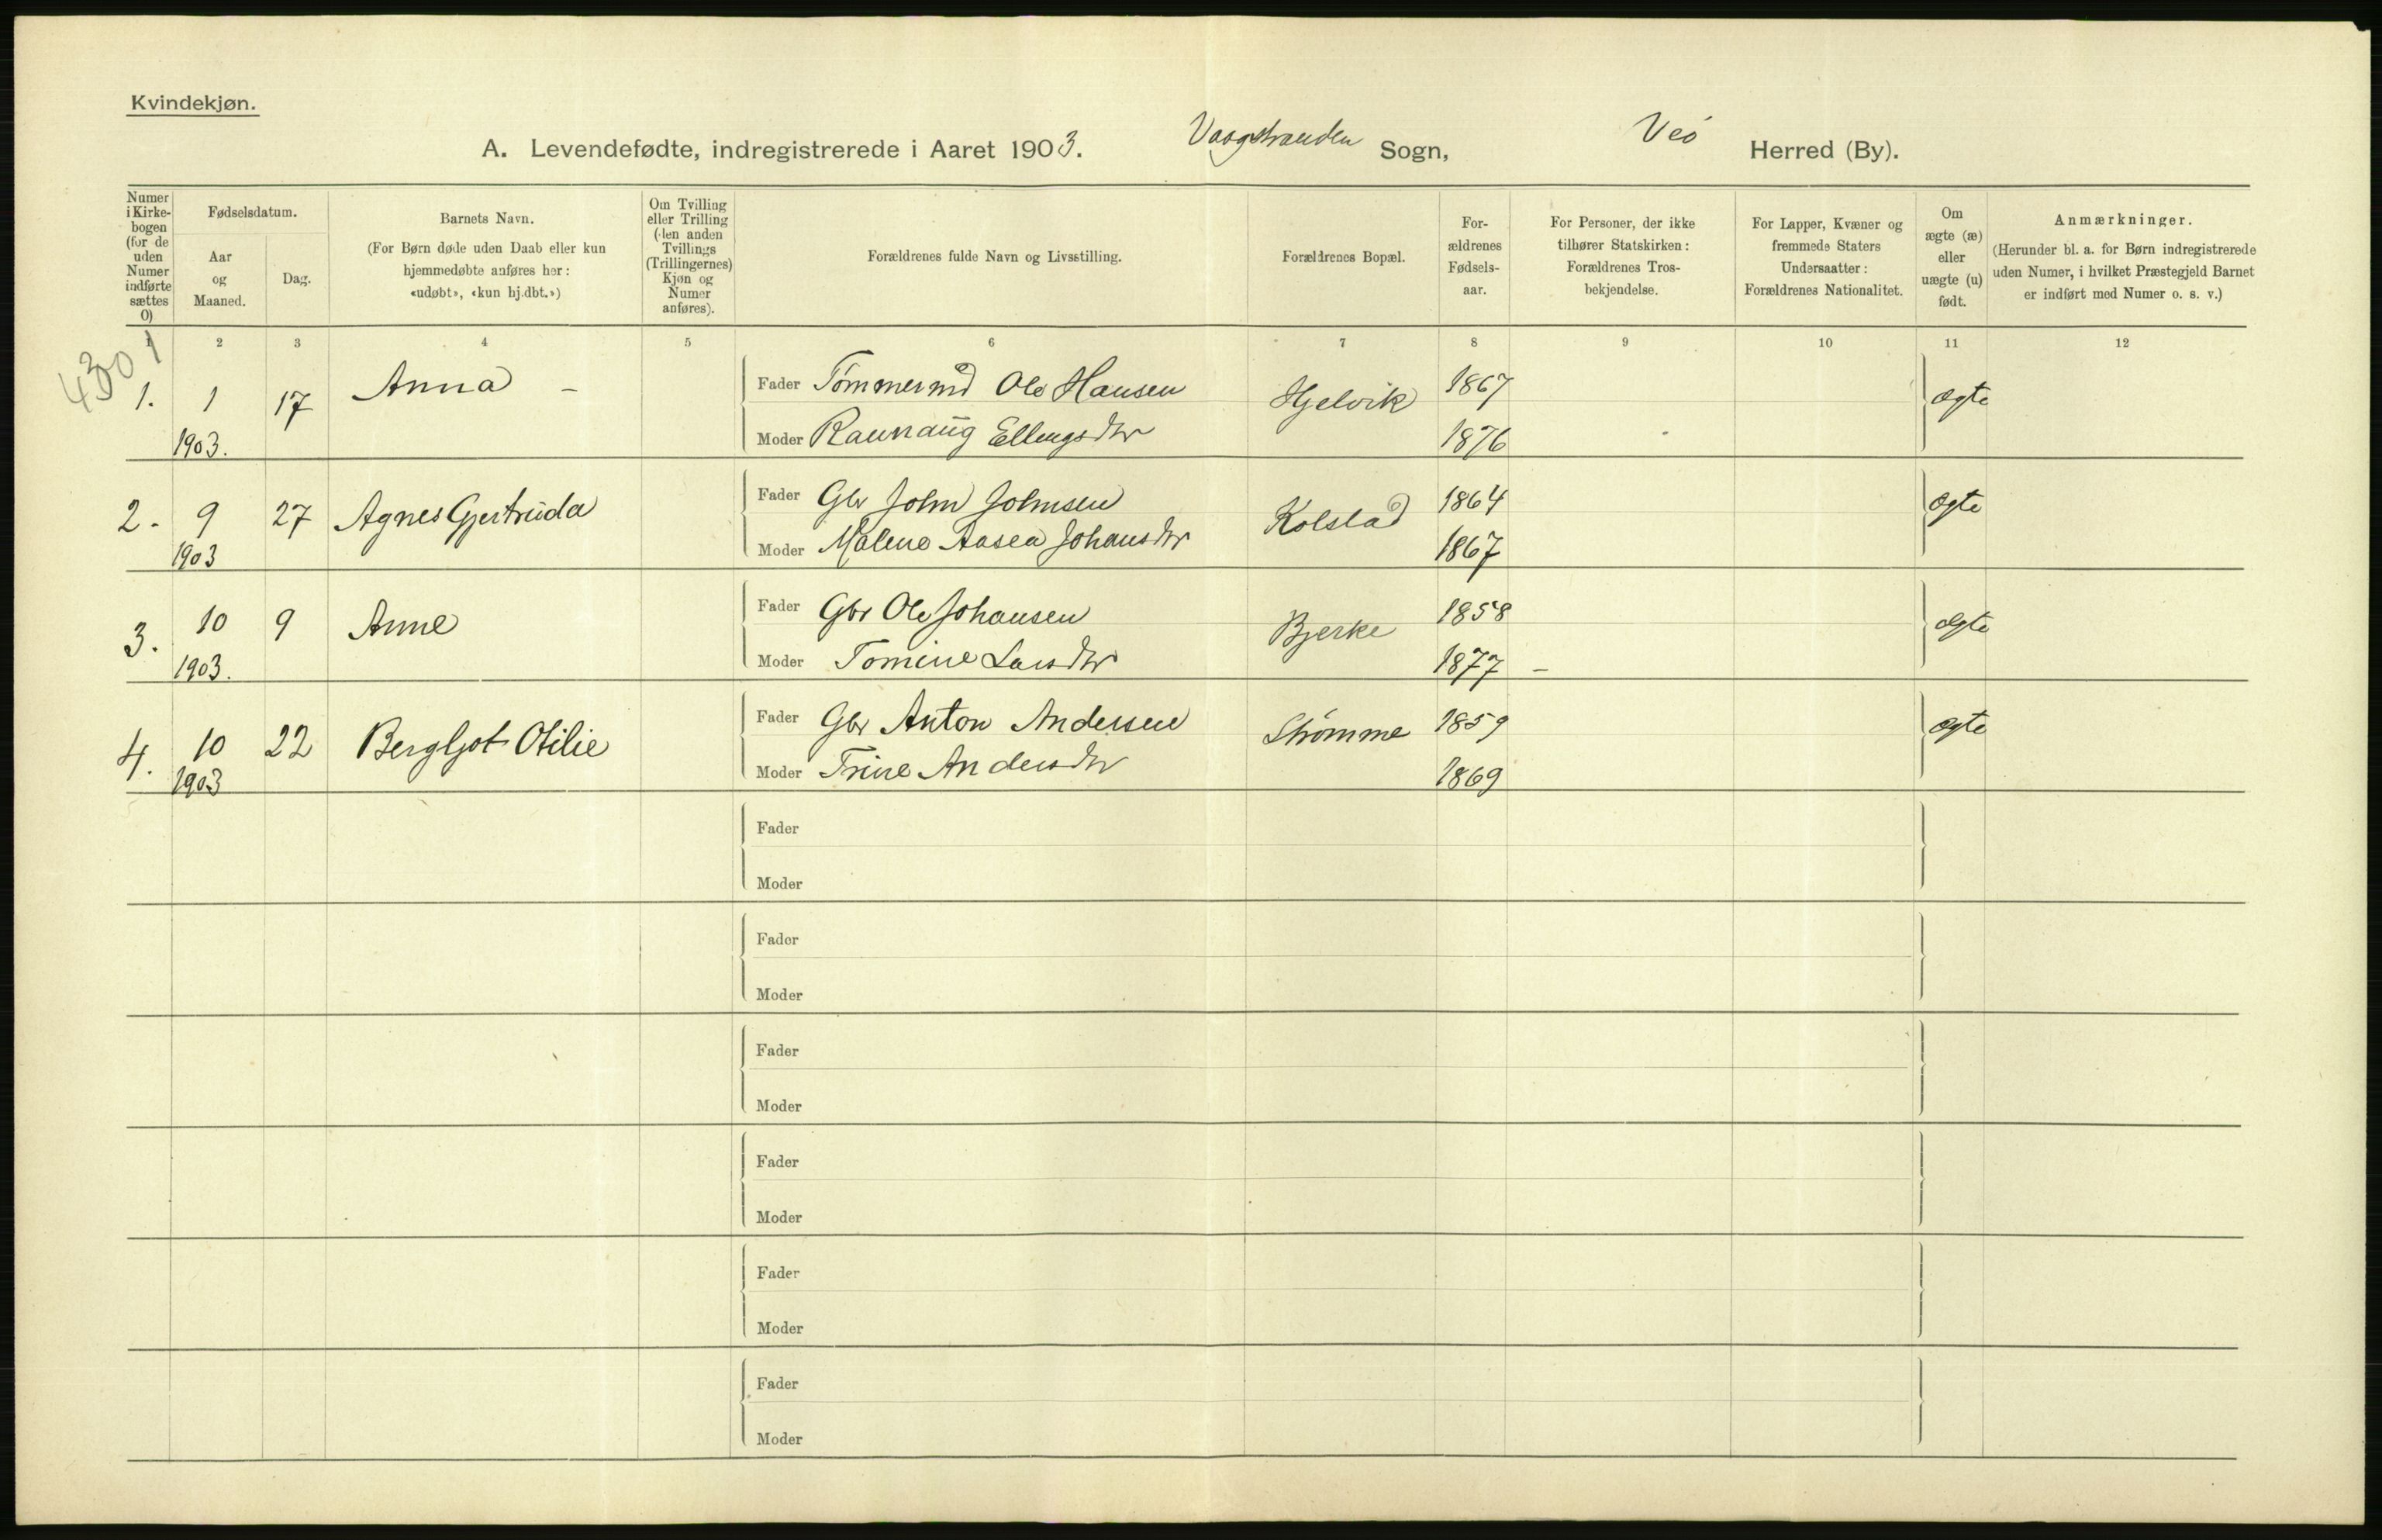 Kvindekjøn.
A. Levendefødte, indregistrerede i Aaret 1903. Vaagstranden Sogn, Veö Herred (By).
Numer i Kirke-bogen (for de uden Numer indførte sættes 0)
Fødselsdatum.
Aar og Maaned.
Dag.
Barnets Navn.
(For Børn døde uden Daab eller kun
hjemmedøbte anføres her:
«udøbt», «kun hj.dbt.»)
Om Tvilling
eller Trilling
(den anden
Tvillings
(Trillingernes)
Kjøn og
Numer
anføres).
Forældrenes fulde Navn og Livsstilling.
Forældrenes Bopæl.
For-
ældrenes
Fødsels-
aar.
For Personer, der ikke
tilhører Statskirken:
Forældrenes Tros-
bekjendelse.
For Lapper, Kvæner og
fremmede Staters
Undersaatter:
Forældrenes Nationalitet.
Om
ægte (æ)
eller
uægte (u)
født.
Anmærkninger.
(Herunder bl. a. for Børn indregistrerede
uden Numer, i hvilket Præstegjeld Barnet
er indført med Numer o. s. v.)
1 2 3 4 5 6 7 8 9 10 11 12
1. 1 17 Anna – Fader Tömmermd Ole Hansen Hjelvik 1867 ægte
1903. Moder Raunaug Ellingsdtr 1876
2. 9 27 Agnes Gjertruda Fader Gbr John Johnsen Kolstad 1864 ægte
1903 Moder Malene Aasea Johansdtr 1867
3. 10 9 Anne Fader Gbr Ole Johansen Bjerke 1858 ægte
1903. Moder Tomine Larsdtr 1877 –
4. 10 22 Bergljot Otilie Fader Gbr Anton Andersen Strömme 1859 ægte
1903 Moder Trine Andersdtr 1869
Fader
Moder
Fader
Moder
Fader
Moder
Fader
Moder
Fader
Moder
Fader
Moder